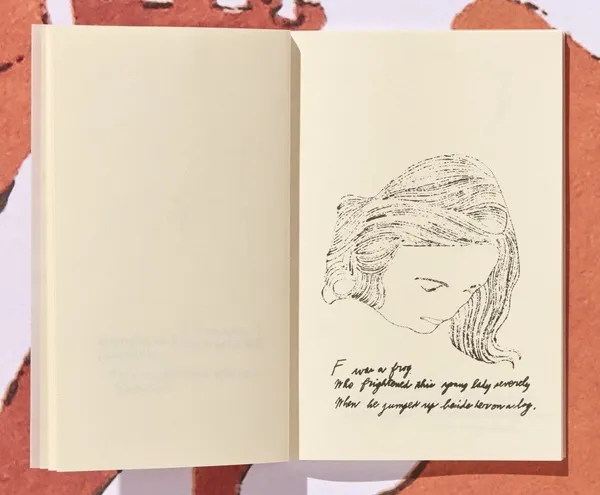 F was a frog
Who frightened this young lady severely
When he jumped up beside her on a log.